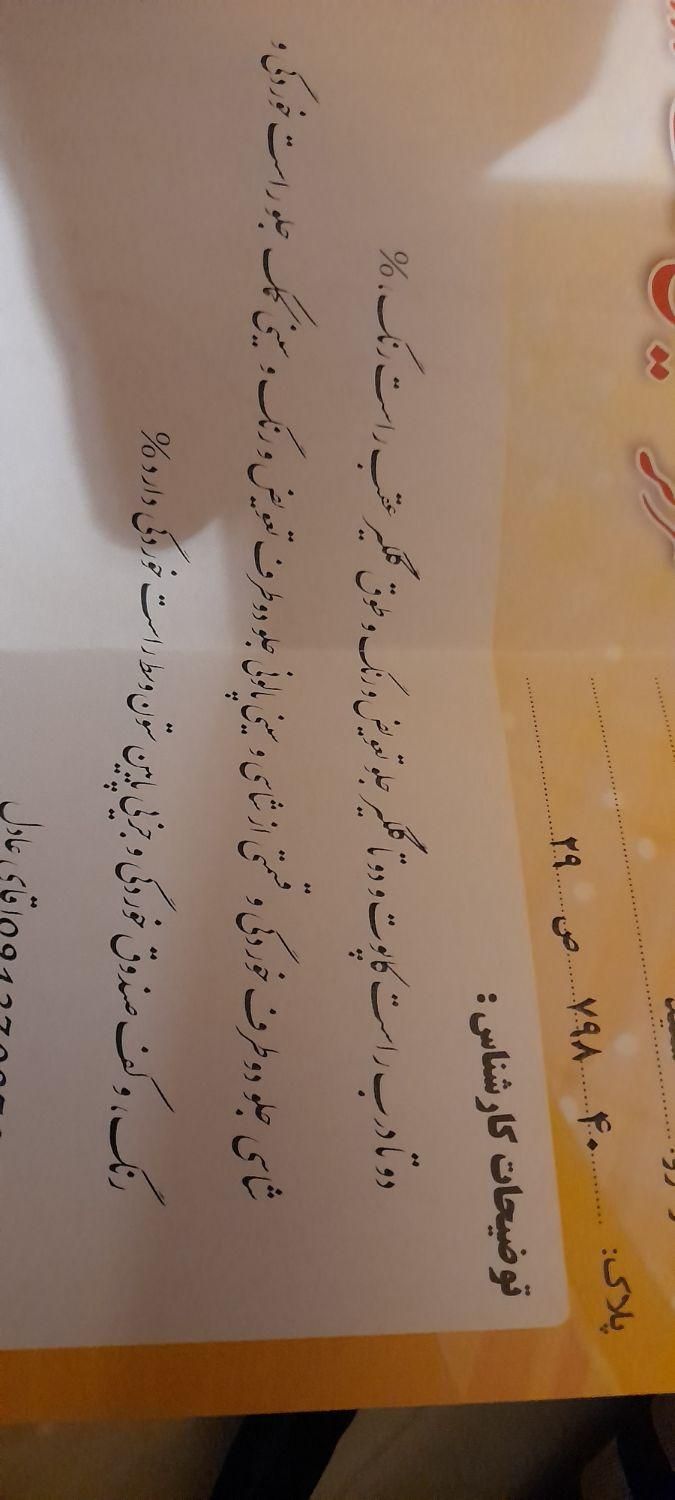 پلاک: ۴۰ ۷۹۸ ص ۲۹
توضیحات کارشناس :
دو تا درب راست کاپوت و دو تا گلگیر جلو تعویض و رنگ و طوق گلگیر عقب راست رنگ، %
شاسی جلو دو طرف خوردگی و قسمتی از شاسی و سینی پالونی جلو دو طرف تعویض و رنگ و سینی کمک جلو راست خوردگی و
رنگ، و کف صندوق خوردگی و جزئی پایین ستون وسط راست خوردگی دارد%
اقای عادل